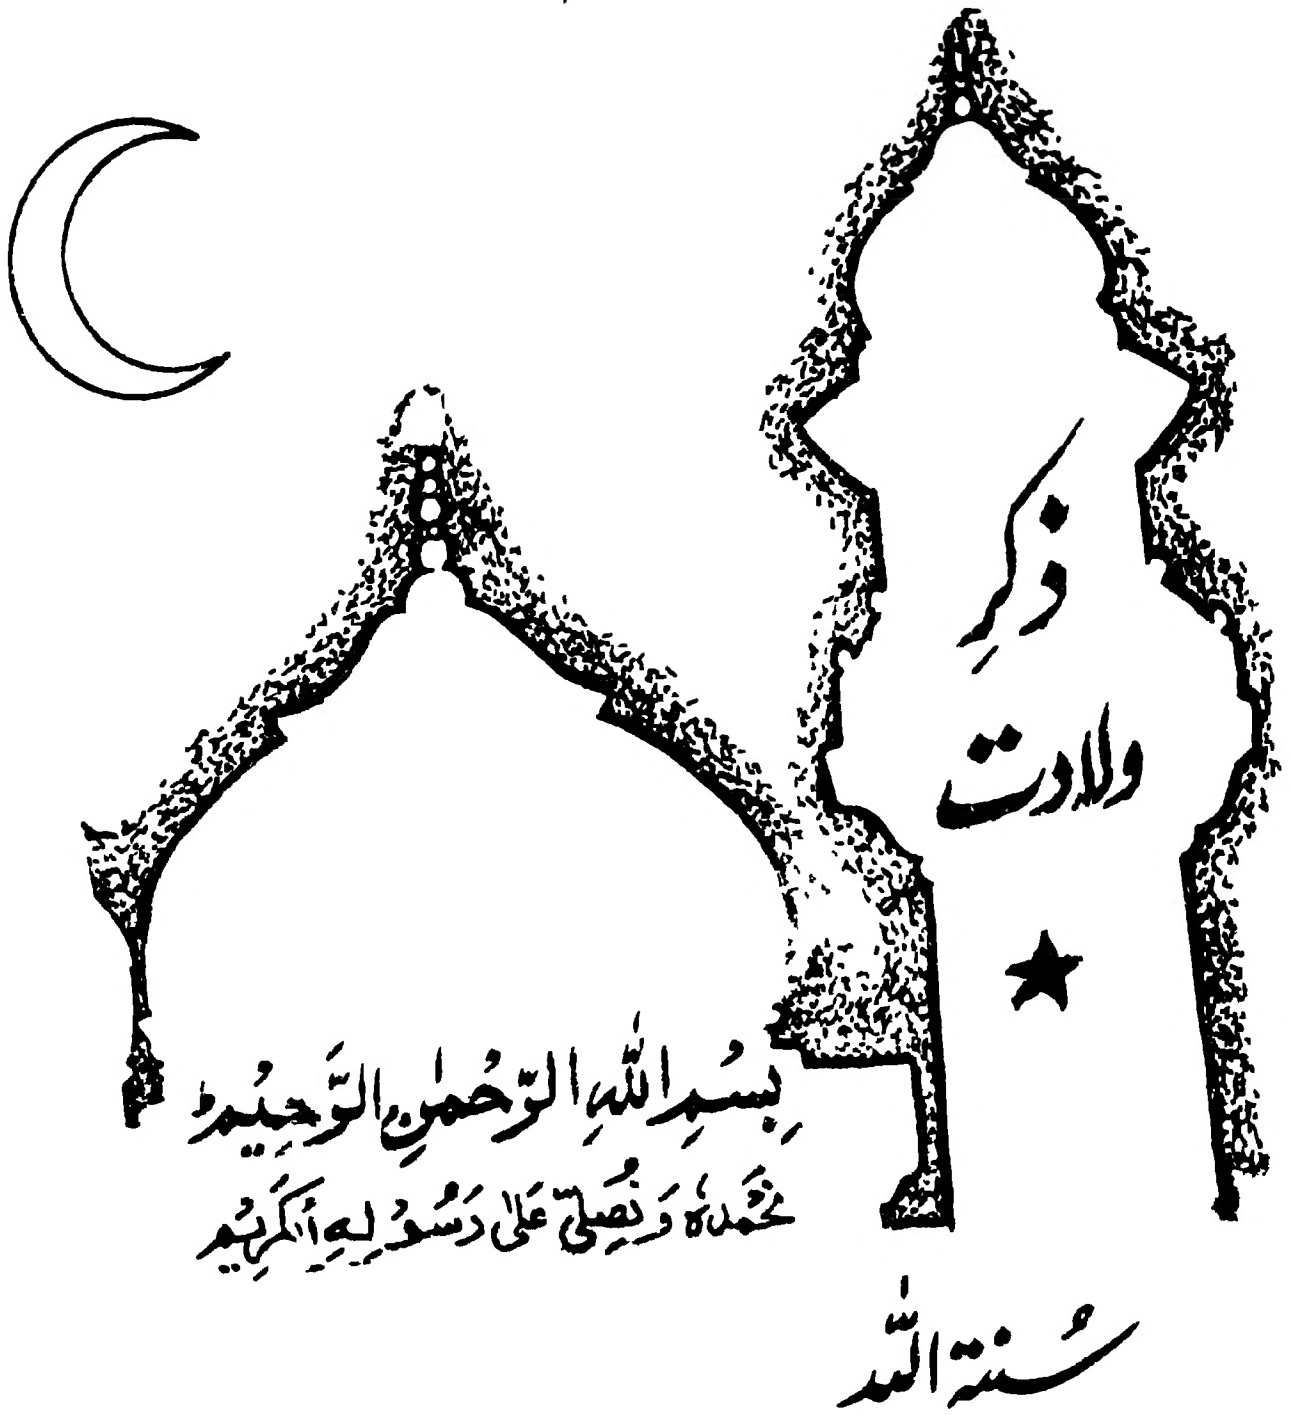 ذکرِ
ولادت
بِسْمِ اللّٰهِ الرَّحْمٰنِ الرَّحِيْمِ ط
نَحْمَدُهٗ وَ نُصَلِّیْ عَلٰی رَسُوْلِهِ الْکَرِیْمِ
سُنۃ اللّٰہ